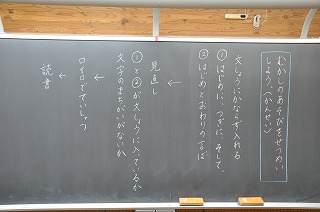 むかしのあそびをせつめい
しよう。(かんせい)
文しょうにかならず入れる
①はじめに、つぎに、そして、
②はじめとおわりの言ば
↓
見直し
①と②が文しょうに入っているか
文字のまちがいがないか
↓
ロイロでていしゅつ
↓
読書